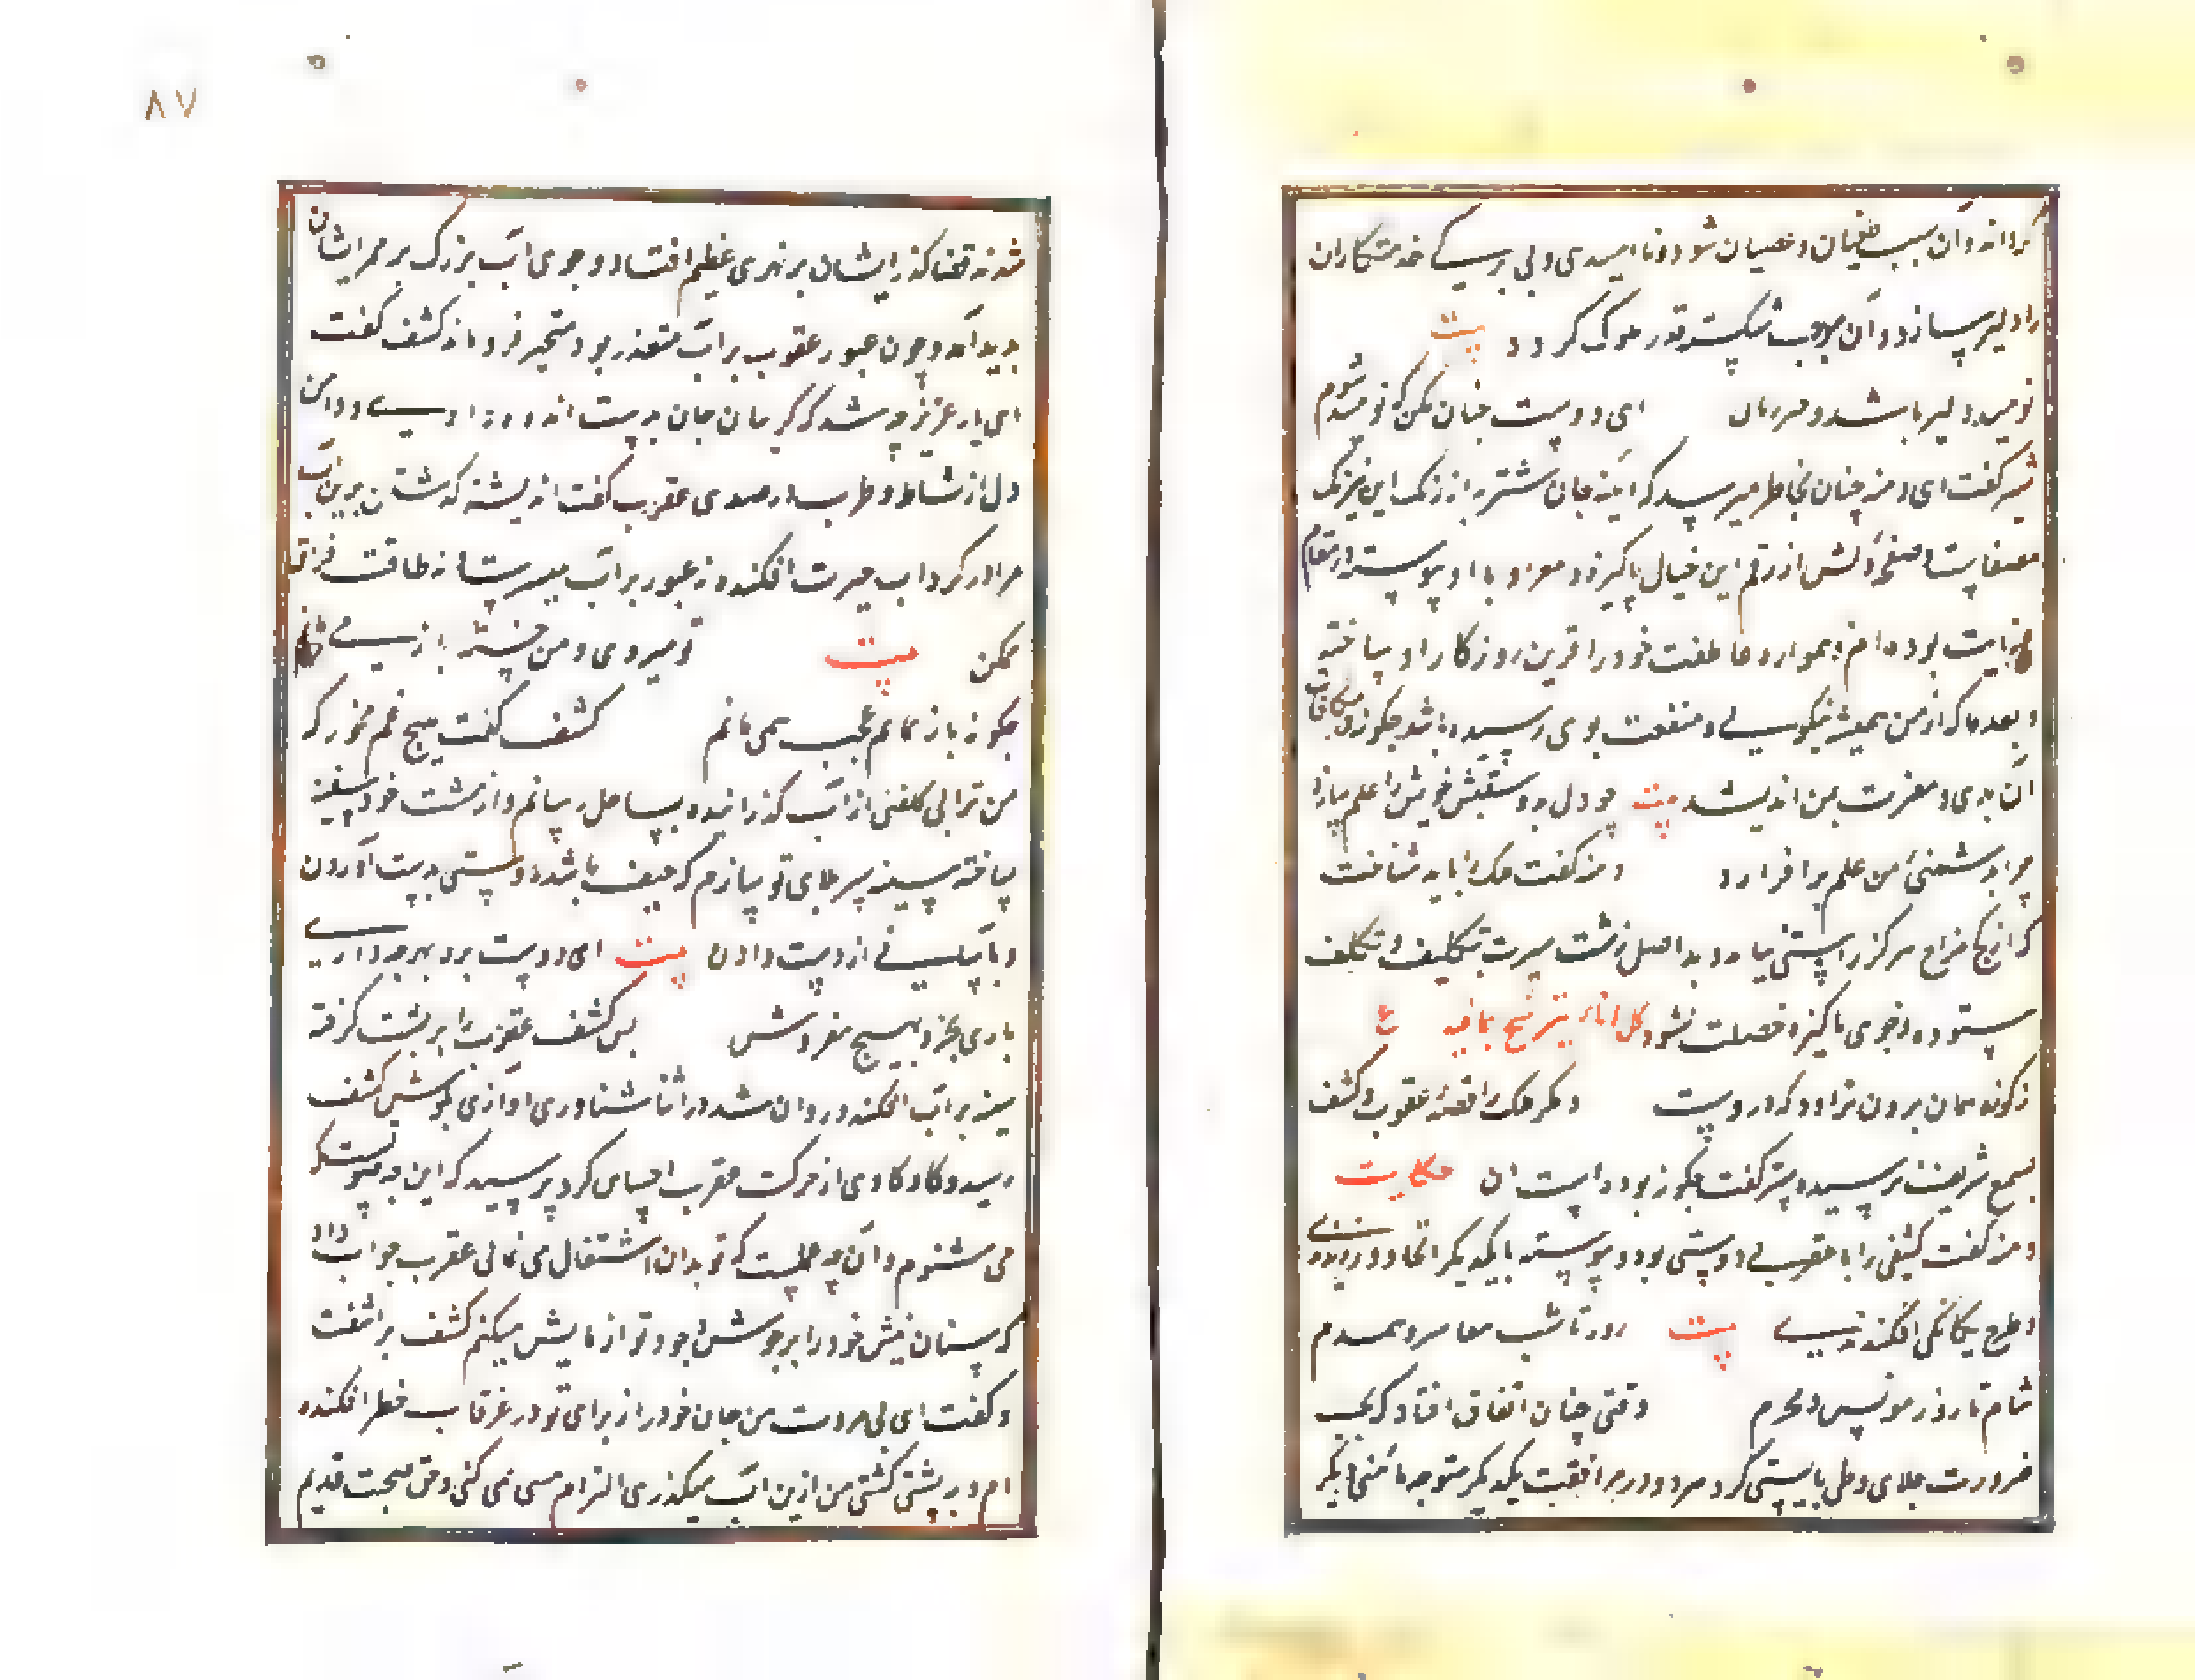 گرداند و آن سبب طغیان و عصیان شود و نا امیدی و بی برسی خدمتکاران
را دلیر سازد و آن موجب شکست قدر ملوک گردد بیت
نومید دلیر باشد و ای دوست چنان مکن که نومید شوم
شیر گفت ای دمنه چنان بخاطر میرسد که آینه جان شنزبه از زنگ این نیرنگ
مصفاست و صفحه دلش از رقم این خیال پاکیزه و معرا و با او پیوسته در مقام
عنایت بوده ام و همواره عاطفت خود را قرین روزگار او ساخته
و بعد ما که از من همیشه نیکویی و منفعت بوی رسیده باشد چگونه مکافات
آن بدی و مضرت من اندیشد بیت چو دل بدوستیش خویش را علم سازد
چرا بدشمنی من علم برافرازد دمنه گفت ملک را باید شناخت
که از کج مزاج هرگز راستی نیاید و بد اصل زشت سیرت بتکلیف و تکلف
ستوده خوی پاکیزه خصلت نشود کل اناء یترشح بما فیه ع
ز کوزه همان برون تراود که دروست و مگر ملک را قصه عقرب و کشف
بسمع شریف نرسیده شیر گفت چگونه بوده است آن حکایت
دمنه گفت کشفی را با عقربی دوستی بود و پیوسته با یکدیگر اتحاد ورزیدندی
و طرح یگانگی افکندندی بیت روز تا شب معاشر و همدم
شام تا روز مونس و محرم وقتی چنان اتفاق افتاد که بحسب
ضرورت جلای وطن بایستی کرد هر دو در مرافقت یکدیگر متوجه مأمنی دیگر
شدند قضا گذر ایشان بر نهری عظیم افتاد و جوی آب بزرگ بر ممر ایشان
پدید آمد و چون عبور عقرب بر آب متعذر بود متحیر فرو ماند کشف گفت
ای یار عزیز چه شد که گریبان جان بدست اندوه دادی و دامن
دل از نشاط و طرب در چیدی عقرب گفت اندیشه گذشتن برین آب
مرا در گرداب حیرت افکنده نه عبور بر آب میسرست و نه طاقت فراق
ممکن بیت تو میروی و من خسته باز میمانم
چگونه باز نمانم عجب همی مانم کشف گفت هیچ غم مخور که
من ترا بی کلفتی از آب گذرانیده بساحل رسانم و از پشت خود سفینه
ساخته سینه سپر بلای تو سازم که حیف باشد دوستی بدست آوردن
و بآسانی از دست دادن بیت ای دوست برو بهرچه داری
یاری بخر و بهیچ مفروش پس کشف عقرب را بر پشت گرفته
سینه بر آب افکند و روان شد در اثنا شناوری آوازی بگوش کشف
رسید و کاوکاوی از حرکت عقرب احساس کرد پرسید که این چه صوتست که
می شنوم و آن چه عملیست که تو بدان اشتغال می نمائی عقرب جواب داد
که سنان نیش خود را بر جوشن وجود تو آزمایش میکنم کشف برآشفت
و گفت ای بی مروت من جان خود را از برای تو در غرقاب خطر افکنده
ام و به پشتی کشتی من ازین آب میگذری التزام منتی نمی کنی و حق صحبت قدیم
۸۷